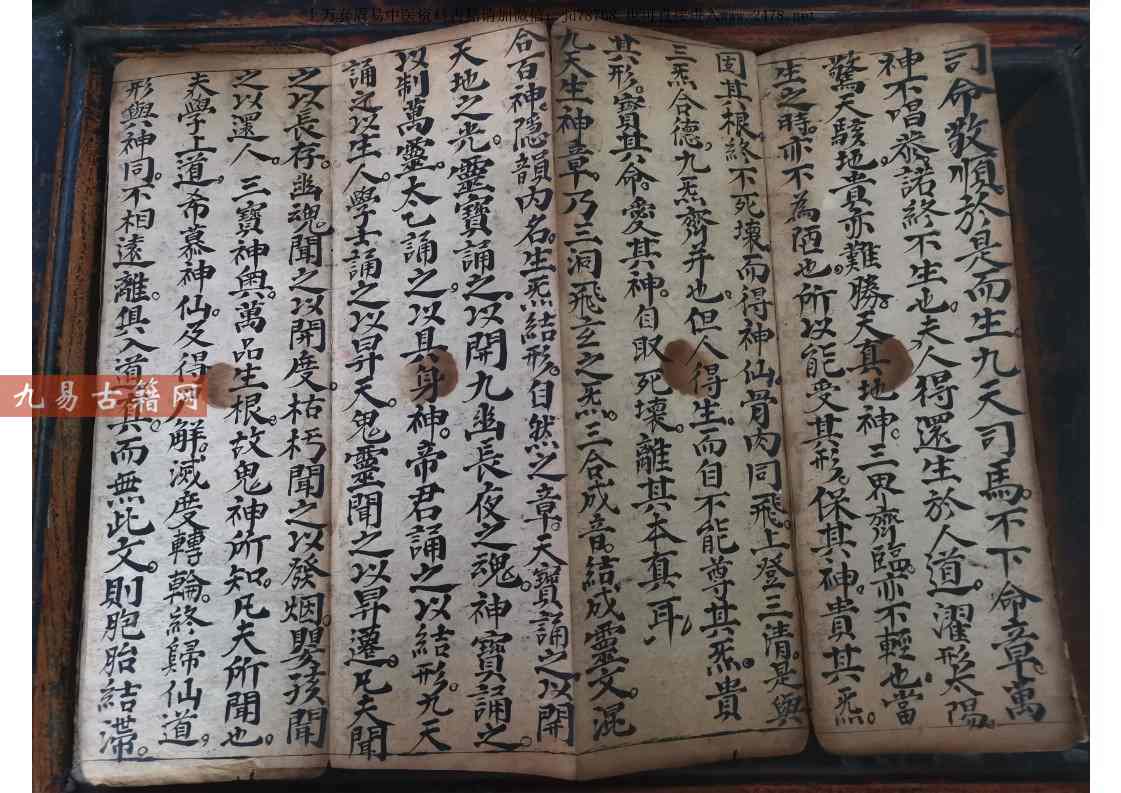 司命敬順於是而生九天司馬。不下命章。萬
神不唱恭諾終不生也。夫人得還生於人道。濯形太陽。
驚天駭地貴亦難勝。天真地神。三界齊臨。亦不輕也。當
生之時。亦不為陋也。所以能受其形。保其神。貴其炁。
固其根。終不死壞而得神仙。骨肉同飛。上登三清。是與
三炁合德。九炁齊并也。但人得生。而自不能尊其炁。貴
其形。寶其命。愛其神。自取死壞。離其本真耳
九天生神章。乃三洞飛玄之炁。三合成音。結成靈文。混
合百神。隱韻內名。生炁結形。自然之章。天寶誦之。以開
天地之光。靈寶誦之。以開九幽長夜之魂。神寶誦之。
以制萬靈。太乙誦之。以具身神。帝君誦之。以結形。九天
誦之以生人。學士誦之以昇天。鬼靈聞之以昇遷。凡夫聞
之以長存。幽魂聞之以開度。枯朽聞之以發烟。嬰孩聞
之以還人。三寶神奧。萬品生根。故鬼神所知。凡夫所聞也。
夫學上道。希慕神仙。及得解。滅度轉輪。終歸仙道。
形與神同。不相遠離。俱入道真。而無此文。則胞胎結滯。
九易古籍网